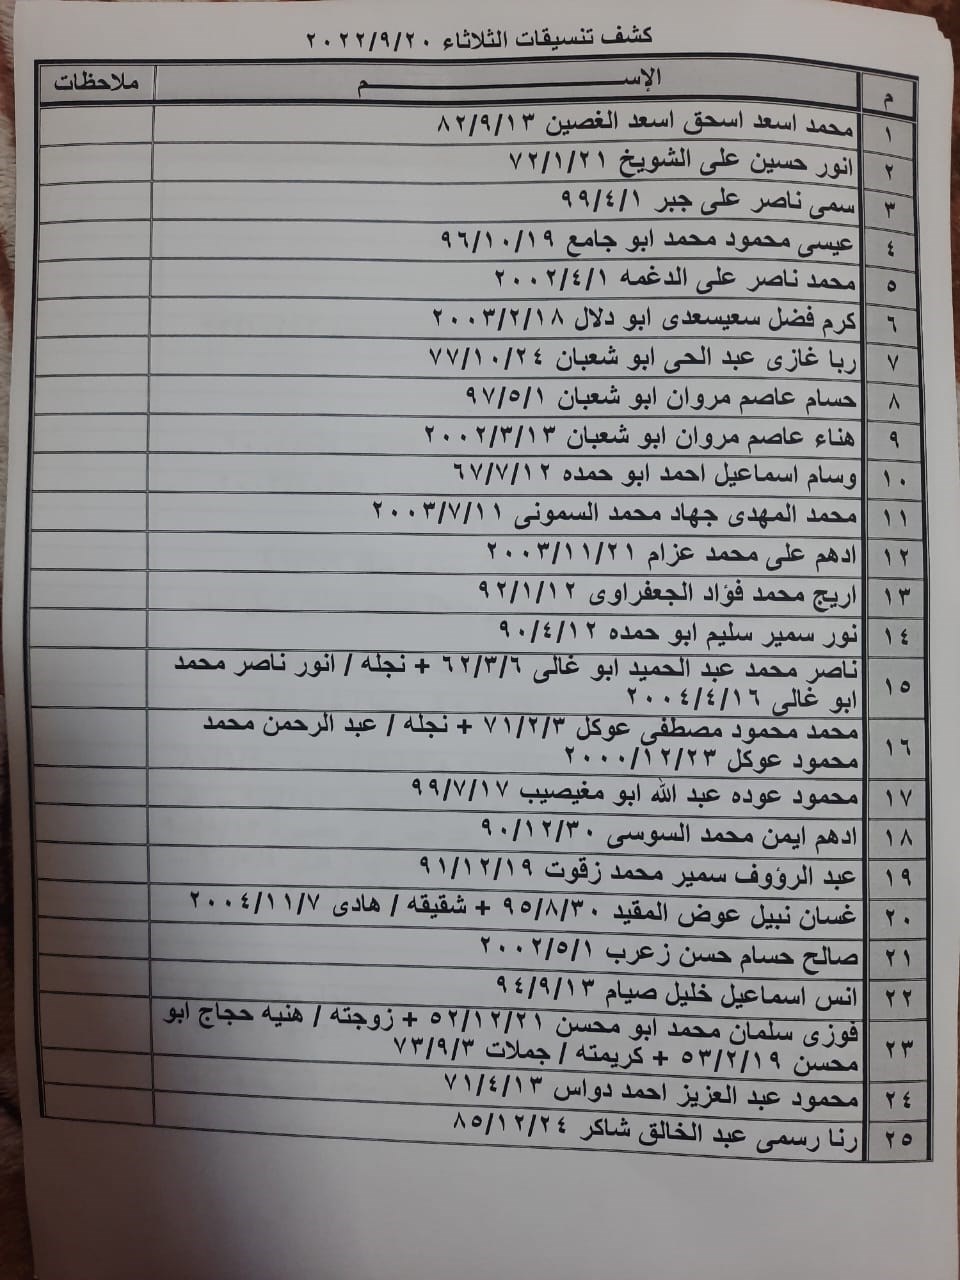 كشف تنسيقات الثلاثاء ٢٠٢٢/٩/٢٠
م الإســـــــــم ملاحظات
١ محمد اسعد اسحق اسعد الغصين ٨٢/٩/١٣
٢ انور حسين على الشويخ ٧٢/١/٢١
٣ سمى ناصر على جبر ٩٩/٤/١
٤ عيسى محمود محمد ابو جامع ٩٦/١٠/١٩
٥ محمد ناصر على الدغمه ٢٠٠٢/٤/١
٦ كرم فضل سعيسعدى ابو دلال ٢٠٠٣/٢/١٨
٧ ربا غازى عبد الحى ابو شعبان ٧٧/١٠/٢٤
٨ حسام عاصم مروان ابو شعبان ٩٧/٥/١
٩ هناء عاصم مروان ابو شعبان ٢٠٠٢/٣/١٣
١٠ وسام اسماعيل احمد ابو حمده ٦٧/٧/١٢
١١ محمد المهدى جهاد محمد السمونى ٢٠٠٣/٧/١١
١٢ ادهم على محمد عزام ٢٠٠٣/١١/٢١
١٣ اريج محمد فؤاد الجعفراوى ٩٢/١/١٢
١٤ نور سمير سليم ابو حمده ٩٠/٤/١٢
١٥ ناصر محمد عبد الحميد ابو غالى ٦٢/٣/٦ + نجله / انور ناصر محمد
ابو غالى ٢٠٠٤/٤/١٦
١٦ محمد محمود مصطفى عوكل ٧١/٢/٣ + نجله / عبد الرحمن محمد
محمود عوكل ٢٠٠٠/١٢/٢٣
١٧ محمود عوده عبد الله ابو مغيصيب ٩٩/٧/١٧
١٨ ادهم ايمن محمد السوسى ٩٠/١٢/٣٠
١٩ عبد الرؤوف سمير محمد زقوت ٩١/١٢/١٩
٢٠ غسان نبيل عوض المقيد ٩٥/٨/٣٠ + شقيقه / هادى ٢٠٠٤/١١/٧
٢١ صالح حسام حسن زعرب ٢٠٠٢/٥/١
٢٢ انس اسماعيل خليل صيام ٩٤/٩/١٣
٢٣ فوزى سلمان محمد ابو محسن ٥٢/١٢/٢١ + زوجته / هنيه حجاج ابو
محسن ٥٣/٢/١٩ + كريمته / جملات ٧٣/٩/٣
٢٤ محمود عبد العزيز احمد دواس ٧١/٤/١٣
٢٥ رنا رسمى عبد الخالق شاكر ٨٥/١٢/٢٤